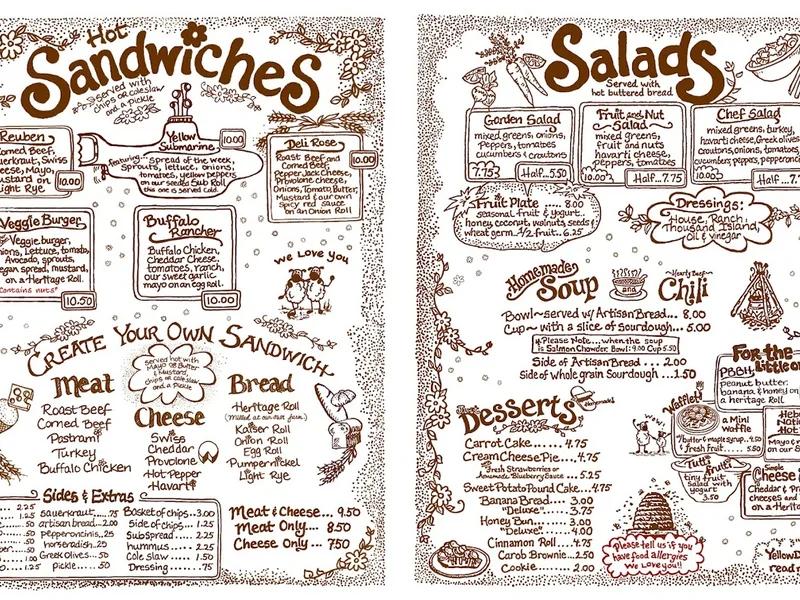 Hot
Sandwiches
served with
chips or coleslaw
and a pickle
Reuben
Corned Beef,
Sauerkraut, Swiss
Cheese, Mayo,
Mustard on
Light Rye
10.00
Yellow
Submarine
10.00
featuring... spread of the week,
sprouts, lettuce, onions,
tomatoes, yellow peppers
on our seeded Sub Roll
this one is served cold.
Deli Rose
10.00
Roast Beef and
Corned Beef,
Pepper Jack Cheese,
Provolone cheese,
Onions, Tomato, Butter,
Mustard & our own
spicy red sauce
on an Onion Roll
Veggie Burger
Veggie burger,
onions, Lettuce, tomato,
Avocado, sprouts,
vegan spread, mustard,
on a Heritage Roll.
contains nuts
10.50
Buffalo
Rancher
Buffalo Chicken,
Cheddar Cheese,
tomatoes, ranch,
our sweet garlic
mayo on an egg Roll.
10.00
we Love you
Create Your Own Sandwich
served hot with
Mayo or Butter
& Mustard,
chips or coleslaw
and a pickle
Meat
Roast Beef
Corned Beef
Pastrami
Turkey
Buffalo Chicken
Cheese
Swiss
Cheddar
Provolone
Hot Pepper
Havarti
Bread
Heritage Roll
(Milled at our own farm)
Kaiser Roll
Onion Roll
Egg Roll
Pumpernickel
Light Rye
Sides & Extras
2.25
1.25
.50
.50
.50
1.00
1.25
sauerkraut .75
artisan bread .. 2.00
pepperoncinis .. .25
horseradish .. .20
Greek Olives .. .50
pickle .... .50
Basket of chips .. 3.00
Side of chips ... 1.25
Sub Spread .... 2.25
hummus ..... 2.25
Cole slaw .... 1.50
Dressing .... .75
Meat & Cheese ... 9.50
Meat Only .... 8.50
Cheese Only .... 7.50
Salads
Served with
hot buttered bread
Garden Salad
mixed greens, onions,
Peppers, tomatoes
cucumbers & croutons
7.75
Half...5.50
Fruit and Nut
Salad
mixed greens,
fruit and nuts
havarti cheese,
peppers, tomatoes
10.00
Half...7.75
Chef Salad
mixed greens, turkey,
havarti cheese, Greek olives
croutons, onions, tomatoes,
cucumbers, peppers, pepperoncini
10.00
Half...7
Fruit Plate .... 8.00
seasonal fruit & yogurt..
honey, coconut, walnuts, seeds &
wheat germ. 1/2 fruit.. 6.25
Dressings:
House, Ranch,
Thousand Island,
Oil & vinegar
Homemade
Soup
and
Hearty Beef
Chili
Bowl~served w/ Artisan Bread... 8.00
Cup~with a slice of sourdough... 5.00
Please Note... when the soup
is Salmon Chowder, Bowl: 9.00 Cup 5.50
Side of Artisan Bread .... 2.00
Side of whole grain Sourdough ...1.50
For the
little on
PBBH
peanut butter,
banana & honey on
a heritage Roll
Waffle!!
a Mini
Waffle
w/butter & maple syrup.. 4.50
& fresh Fruit.... 5.50
Tutti
Frutti
tiny fruit
salad with
yogurt
3.50
Mayo &
on our
Simple
Cheese
Cheddar & Pro
cheeses and
on a Heritage
Desserts
Carrot Cake .... 4.75
Cream Cheese Pie .... 4.75
w/ Fresh Strawberries or
Homemade Blueberry Sauce .... 5.25
Sweet Potato Pound Cake.... 4.75
Banana Bread .... 3.00
"Deluxe" .... 3.75
Honey Bun .... 3.00
"Deluxe" .... 4.00
Cinnamon Roll .... 4.75
Carob Brownie ... 2.50
Cookie .... 2.00
wow!
Please tell us if you
have food allergies
We Love you!!
Yellow D
read m